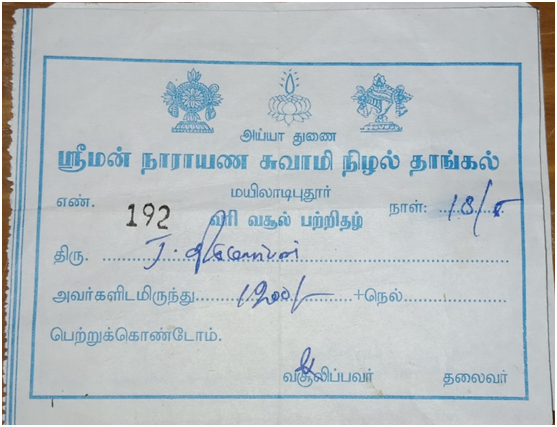 அய்யா துணை
ஸ்ரீமன் நாராயண சுவாமி நிழல் தாங்கல்
மயிலாடிபுதூர்
எண். 192 வரி வசூல் பற்றிதழ் நாள்: 18/8
திரு. J.
அவர்களிடமிருந்து 1200/- +நெல்
பெற்றுக்கொண்டோம்.
வசூலிப்பவர் தலைவர்